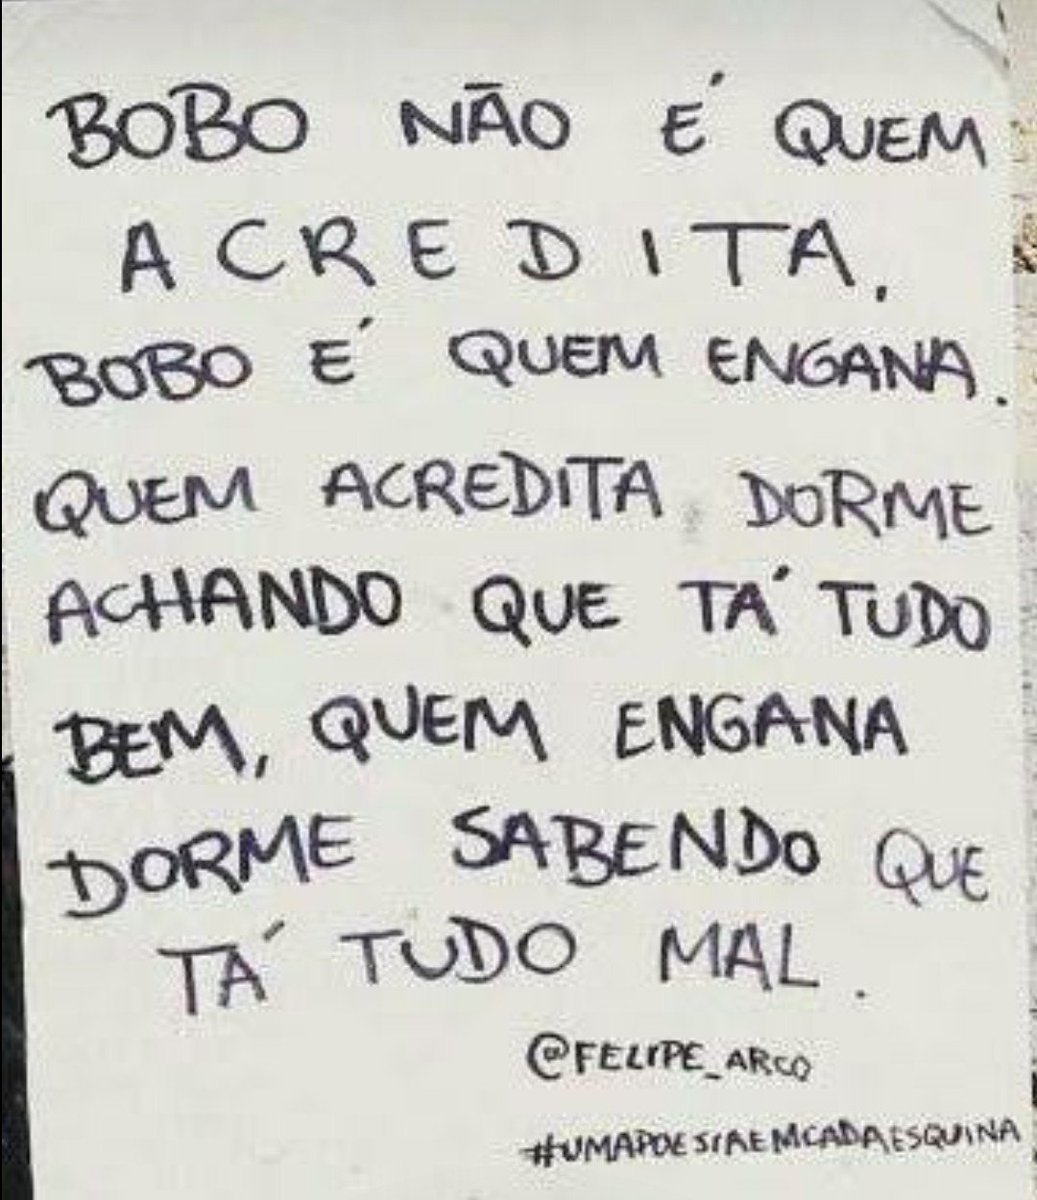 BOBO NÃO É QUEM
ACREDITA.
BOBO É QUEM ENGANA.
QUEM ACREDITA DORME
ACHANDO QUE TÁ TUDO
BEM, QUEM ENGANA
DORME SABENDO QUE
TÁ TUDO MAL.
@FELIPE_ARCO
#UMAPOESIAEMCADAESQUINA